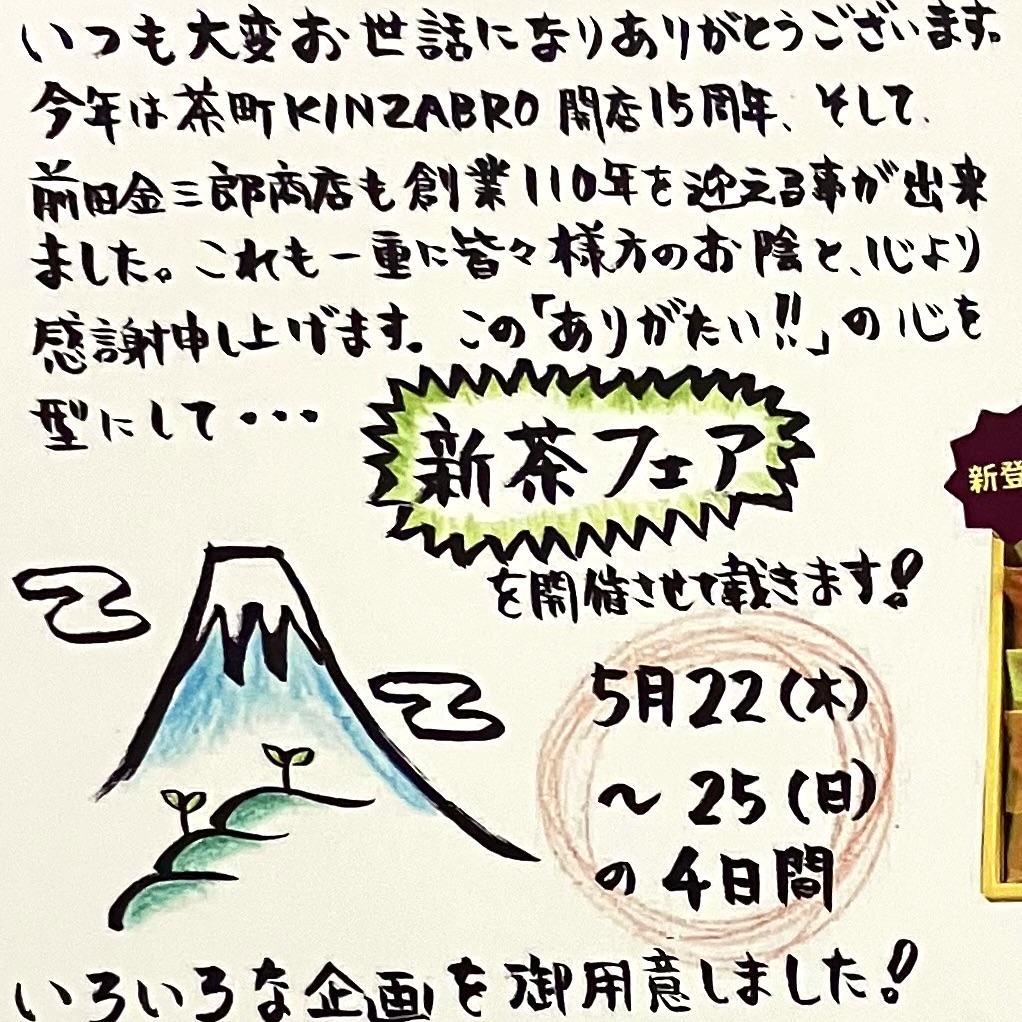 いつも大変お世話になりありがとうございます。
今年は茶町KINZABRO開店15周年、そして、
前田金三郎商店も創業110年を迎える事が出来
ました。これも一重に皆々様方のお陰と、心より
感謝申し上げます。この「ありがたい!!」の心を
型にして・・・
新茶フェア
を開催させて戴きます!
5月22(木)
～25(日)
の4日間
いろいろな企画を御用意しました!
新登